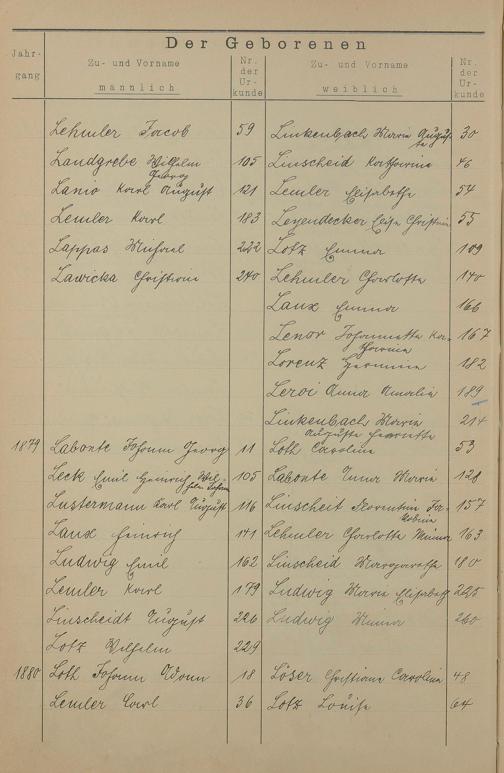 Der Geborenen
Jahrgang
Zu- und Vorname
männlich
Nr. der Urkunde
Zu- und Vorname
weiblich
Nr. der Urkunde
Lehmler Jacob 59 Linkenbach Maria Auguste 30
Landgrebe Wilhelm Georg 105 Linscheid Katharina 46
Lanio Karl August 121 Lemler Elisabetha 54
Lemler Karl 183 Leyendecker Elise Christine 55
Lappas Michael 222 Lotz Emma 109
Lawicka Christian 240 Lehmler Charlotte 140
Laux Emma 166
Lenor Johannetta Katharina 167
Lorenz Hermine 182
Leroi Anna Amalia 189
Linkenbach Maria Auguste Henriette 214
1879 Labonte Johann Georg 11 Loth Carolina 53
Leck Emil Heinrich Wilhelm Johann 105 Labonte Anna Maria 128
Lustermann Karl August 116 Linscheit Florentine Jakobine 157
Laux Heinrich 141 Lehmler Charlotte Minna 163
Ludwig Emil 162 Linscheid Margaretha 180
Lemler Karl 179 Ludwig Maria Elisabeth 225
Linscheidt August 226 Ludwig Minna 260
Lotz Wilhelm 229
1880 Loth Johann Adam 18 Löser Christiane Carolina 48
Lemler Carl 36 Lotz Louise 64